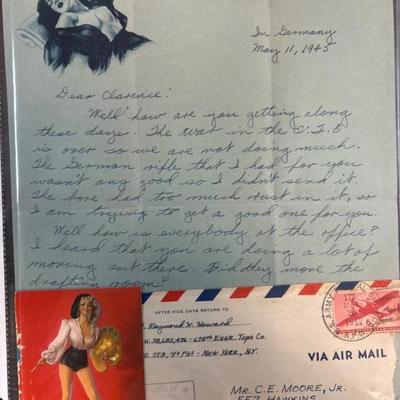 In Germany
May 11, 1945
Dear Clarence:
Well how are you getting along
these days. The war in the E.T.O
is over so we are not doing much.
The German rifle that I had for you
wasn't any good so I didn't send it.
The bore had too much rust in it, so
I am trying to get a good one for you.
Well how is everybody at the office?
I heard that you are doing a lot of
moving out there. Did they move the
drafting room?
AFTER FIVE DAYS RETURN TO
Raymond H. Howard
N. 38,482,436 - 678th Engr. Topo Co.
O. 758, % PM - New York, N.Y.
VIA AIR MAIL
U.S. ARMY
MR. C.E. MOORE, JR.
557 HAWKINS